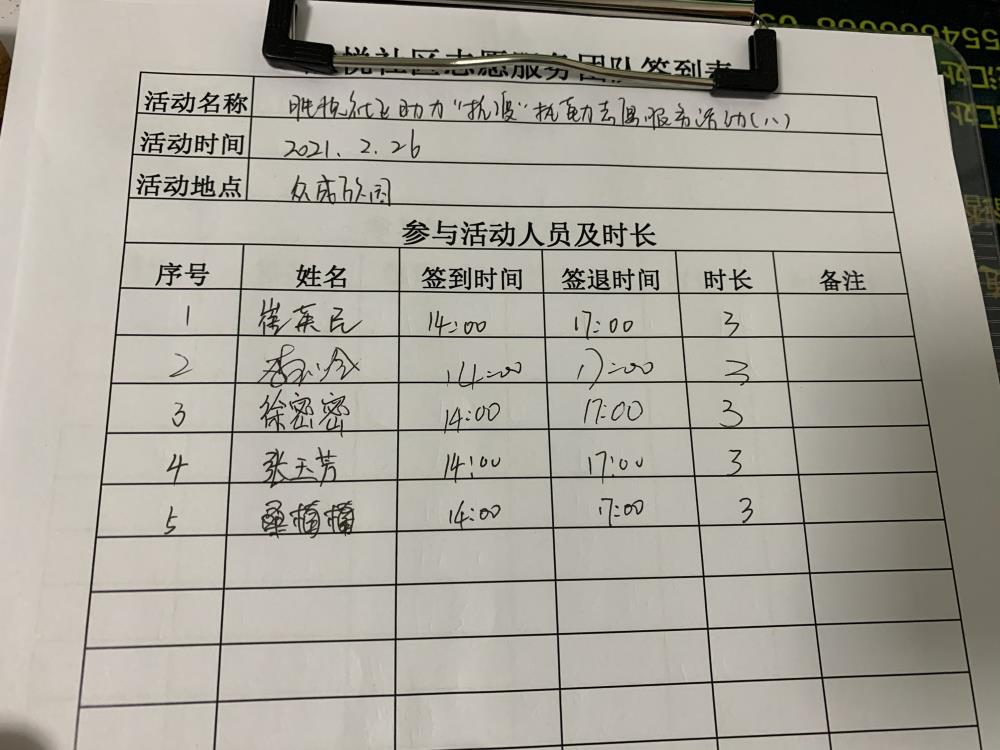 悦社区志愿服务团队签到表
活动名称 社区助力"抗疫"抗击志愿服务活动(八)
活动时间 2021.2.26
活动地点
参与活动人员及时长
序号 姓名 签到时间 签退时间 时长 备注
1 崔英民 14:00 17:00 3
2 14:00 17:00 3
3 徐密密 14:00 17:00 3
4 张玉芳 14:00 17:00 3
5 14:00 17:00 3